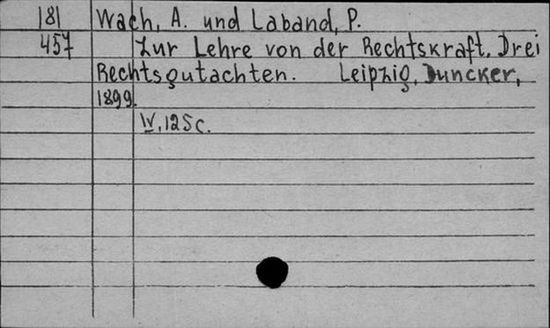 181 Wach, A. und Laband, P.
457 Zur Lehre von der Rechtskraft. Drei
Rechtsgutachten. Leipzig, Duncker,
1899.
IV, 125 c.